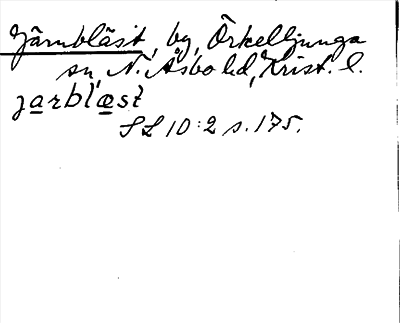 Järnbläst, by, Örkelljunga
sn, N. Åsbo hd, Krist. l.
jarblæst
SL 10:2 s. 175.